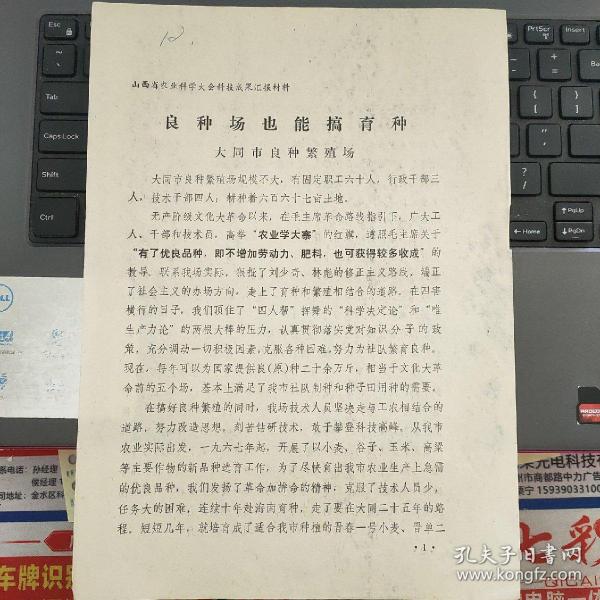 12.
山西省农业科学大会科技成果汇报材料
良种场也能搞育种
大同市良种繁殖场
大同市良种繁殖场规模不大，有固定职工六十人，行政干部三
人，技术干部四人；耕种着六百六十七亩土地。
无产阶级文化大革命以来，在毛主席革命路线指引下，广大工
人、干部和技术员，高举“农业学大寨”的红旗，遵照毛主席关于
“有了优良品种，即不增加劳动力、肥料，也可获得较多收成”的
教导，联系我场实际，狠批了刘少奇、林彪的修正主义路线，端正
了社会主义的办场方向，走上了育种和繁殖相结合的道路。在四害
横行的日子，我们顶住了“四人帮”挥舞的“科学决定论”和“唯
生产力论”的两根大棒的压力，认真贯彻落实党对知识分子的政
策，充分调动一切积极因素，克服各种困难，努力为社队繁育良种。
现在，每年可以为国家提供良(原)种二十余万斤，相当于文化大革
命前的五个场，基本上满足了我市社队制种和种子田用种的需要。
在搞好良种繁殖的同时，我场技术人员坚决走与工农相结合的
道路，努力改造思想，刻苦钻研技术，敢于攀登科技高峰。从我市
农业实际出发，一九六七年起，开展了以小麦、谷子、玉米、高粱
等主要作物的新品种选育工作，为了尽快育出我市农业生产上急需
的优良品种，我们发扬了革命加拼命的精神，克服了技术人员少，
任务大的困难，连续十年赴海南育种，走了要在大同二十五年的路
程。短短几年，就培育成了适合我市种植的晋春一号小麦、晋单二
·1·
Esc
Tab
Caps Lock
Shift
Ctrl
Backspace
Enter
Shift
PgUp
PgDn
DELL
系电话：孙经理
侯经理
司地址：金水区科
车牌识别
光电科技有
州市商都路中力广
康宁 15939033100
七彩
QICAI
电脑一体
孔夫子旧书网
www.kongfz.com